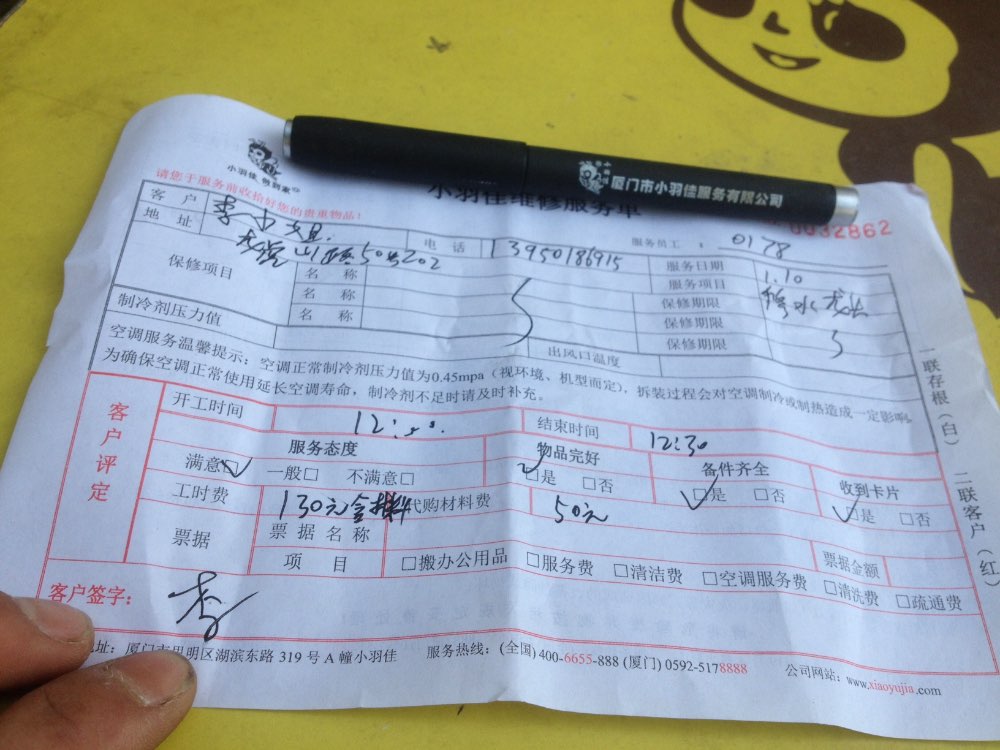 小羽佳 帮到家
厦门市小羽佳服务有限公司
小羽佳维修服务单
请您于服务前收拾好您的贵重物品!
0032862
客 户 李小姐 电 话 13950186915 服务员工: 0178
地 址 山 50号202 服务日期 1.10
保修项目 名 称 服务项目 修水龙头
名 称 保修期限
名 称 保修期限
制冷剂压力值 出风口温度 保修期限
空调服务温馨提示:空调正常制冷剂压力值为0.45mpa(视环境、机型而定),拆装过程会对空调制冷或制热造成一定影响,
为确保空调正常使用延长空调寿命,制冷剂不足时请及时补充。
客户评定
开工时间 12: 结束时间 12:30
服务态度 物品完好 备件齐全 收到卡片
满意□ 一般□ 不满意□ □是 □否 □是 □否 □是 □否
工时费 130元含材料 代购材料费 50元
票据 票 据 名 称 票据金额
项 目 □搬办公用品 □服务费 □清洁费 □空调服务费 □清洗费 □疏通费
客户签字: 李
地址:厦门市思明区湖滨东路 319 号 A 幢小羽佳 服务热线:(全国) 400-6655-888 (厦门) 0592-5178888 公司网站:www.xiaoyujia.com
一联存根(白) 二联客户(红)